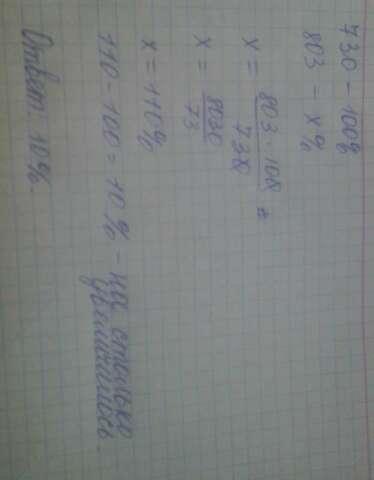 730 - 100%
803 - x%
x = 803 · 100 / 730 =
x = 8030 / 73
x = 110%
110 - 100 = 10% - на столько
увеличилось.
Ответ: 10%.